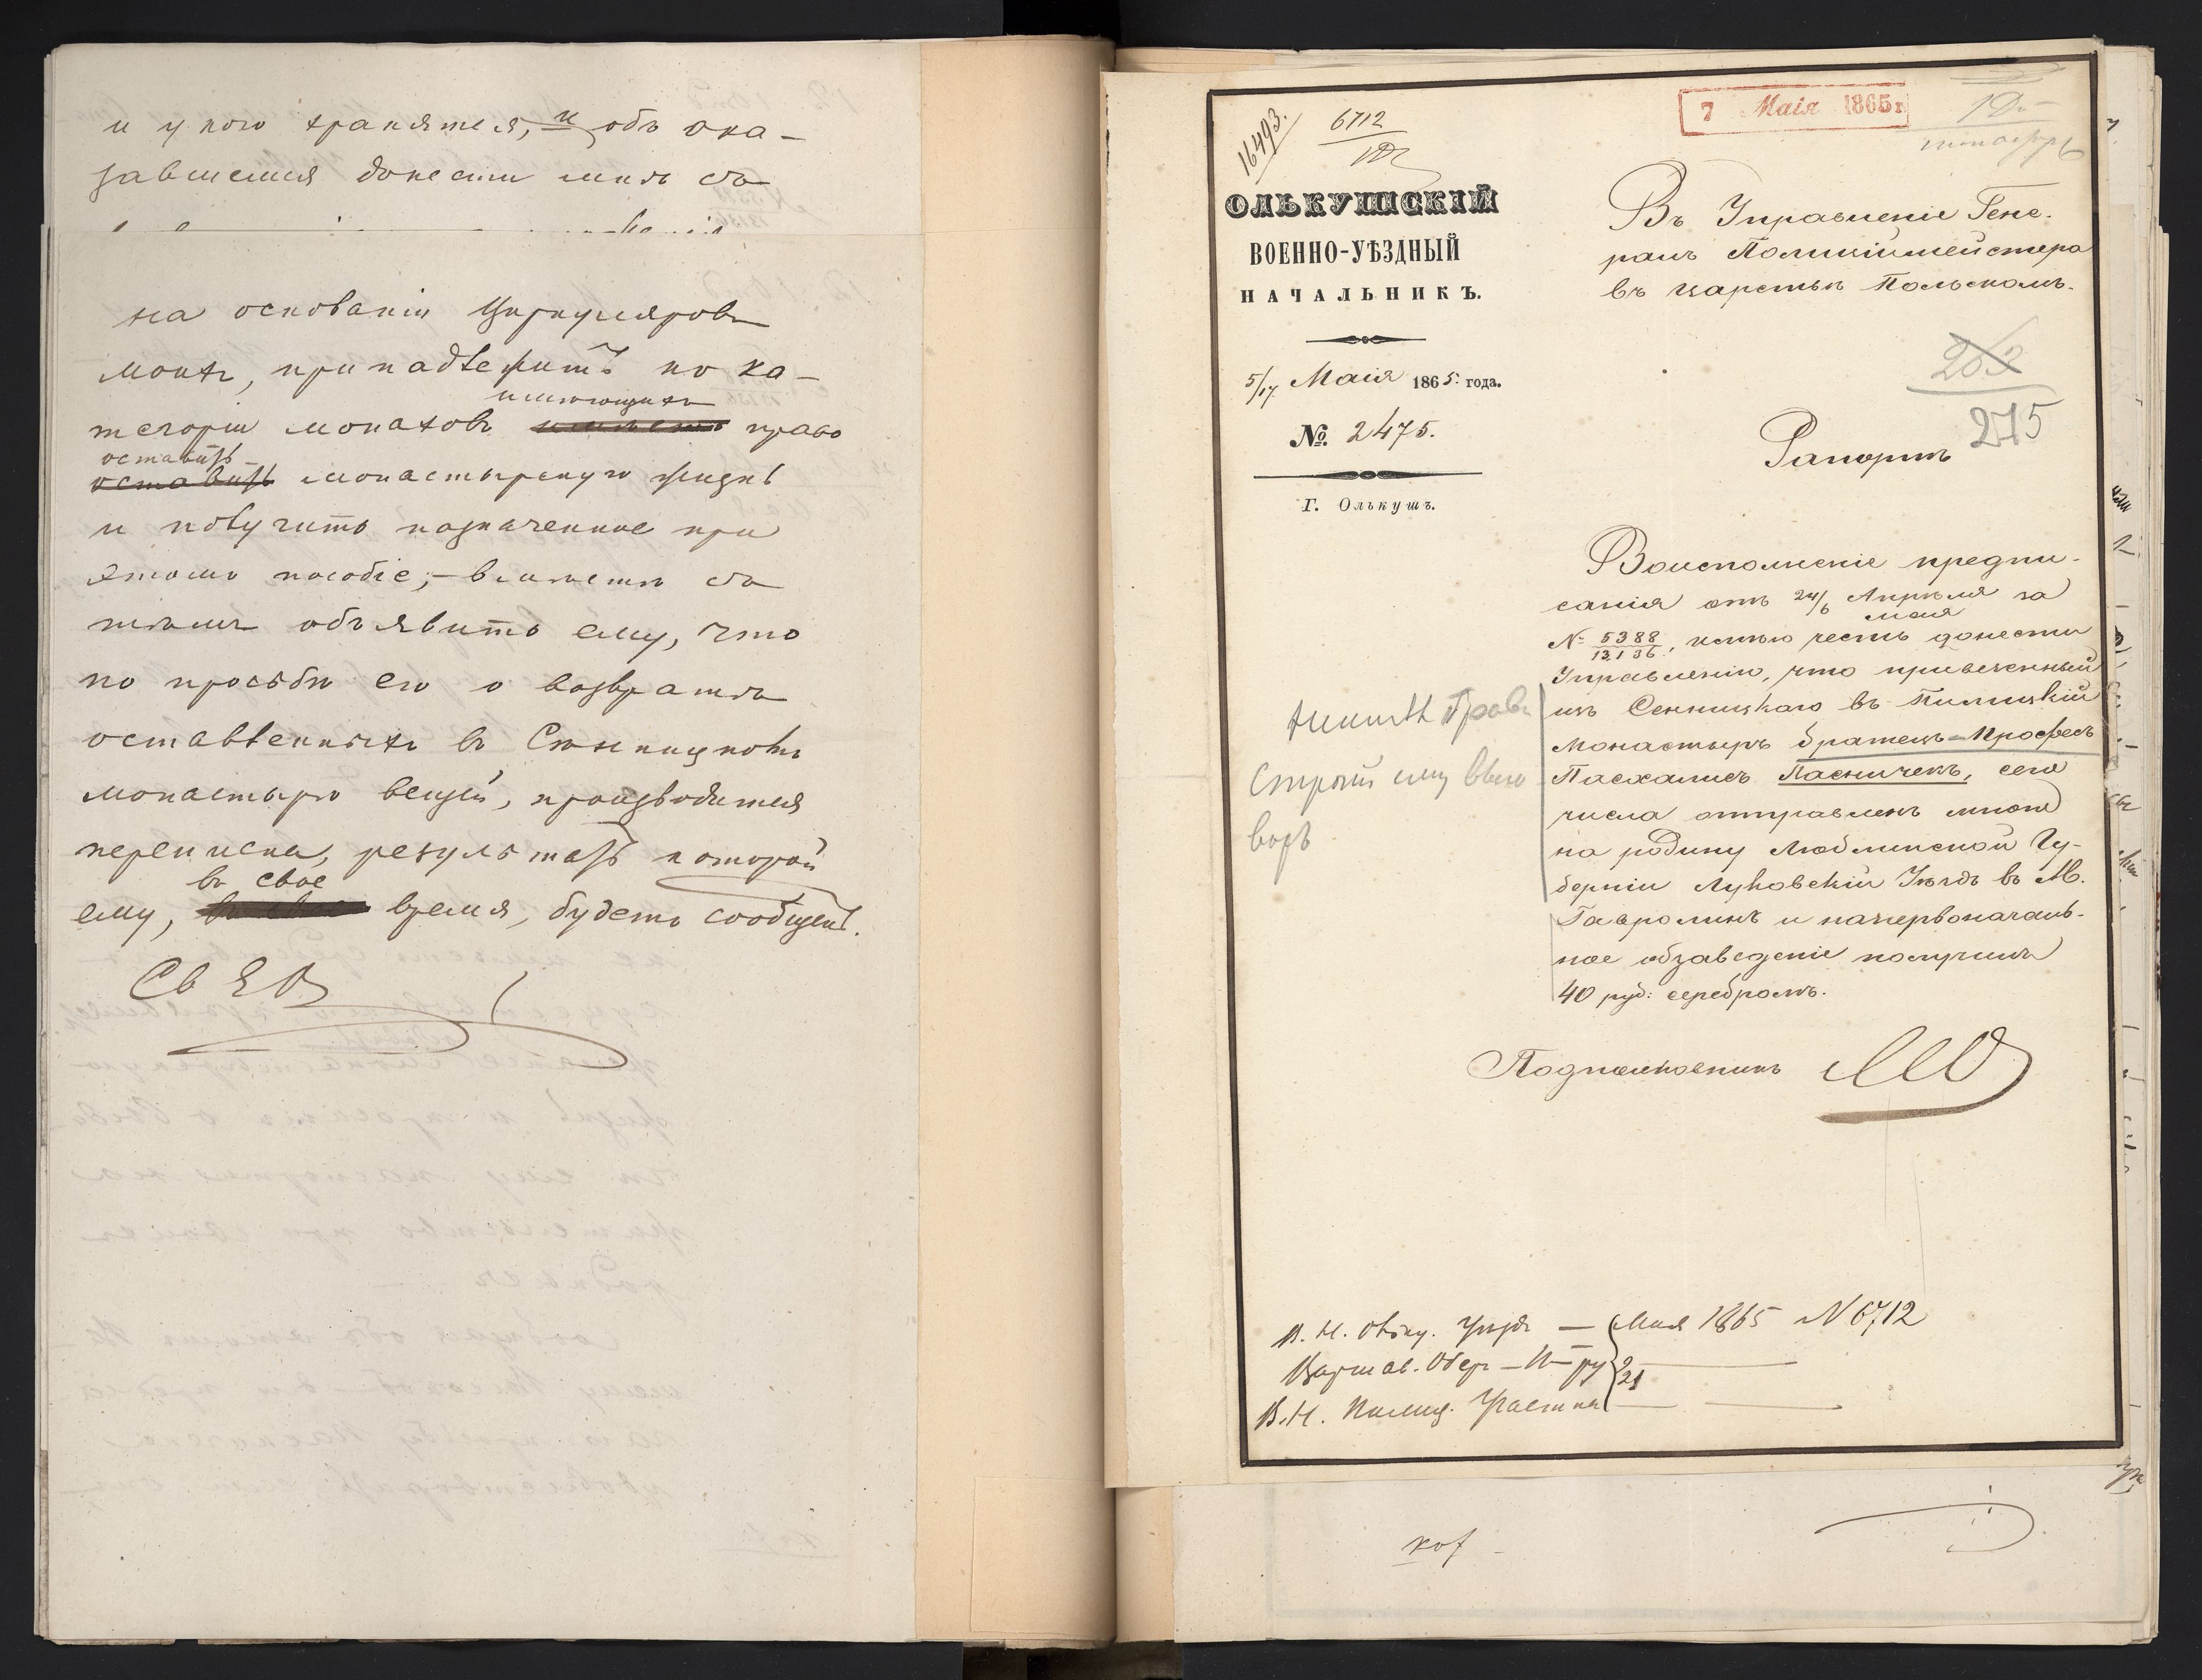 и у кого хранятся, и объ ока-
завшемся донести мнѣ съ
на основаніи Циркуляровъ
моихъ, принадлежитъ по ка-
имѣющихъ
тегоріи монаховъ имѣетъ право
оставить
оставить монастырскую жизнь
и получить назначенное при
этомъ пособіе; - вмѣстѣ съ
тѣмъ объявить ему, что
по просьбѣ его о возвратѣ
оставленныхъ въ Сѣнницкомъ
монастырѣ вещей, производится
переписка, результатъ которой
въ свое
ему, время, будетъ сообщенъ.
16493.
6712
7 Маія 1865 г.
ОЛЬКУШСКІЙ
ВОЕННО-УѢЗДНЫЙ
НАЧАЛЬНИКЪ.
5/17 Маія 1865. года.
№. 2475.
Г. Олькушъ.
Въ Управленіе Гене-
ралъ Полиціймейстера
въ царствѣ Польскомъ.
252
275
Рапортъ
Воисполненіе предпи-
санія отъ 24/6 Апрѣля/мая за
№ 5388/13136, имѣю честь донести
Управленію, что привезенный
изъ Сенницкаго въ Пилицкій
Монастырь братецъ-Професъ
Пасхалисъ Пасничекъ, сего
числа отправленъ мною
на родину Люблинской Гу-
берніи Луковскій Уѣздъ въ М.
Гавролинъ и напервоначаль-
ное обзаведеніе получилъ
40 руб: серебромъ.
Подполковникъ
В. Н. Ольку. Уѣзда — Мая 1865 N 6712
Варшав. Обер-П-ру 21
В. Н. Пилиц. Участка